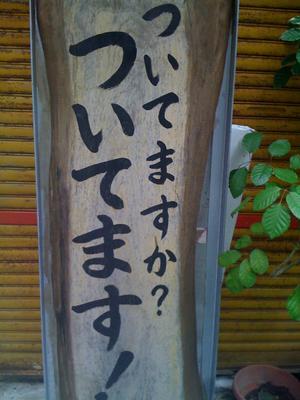 ついてますか?
ついてます!